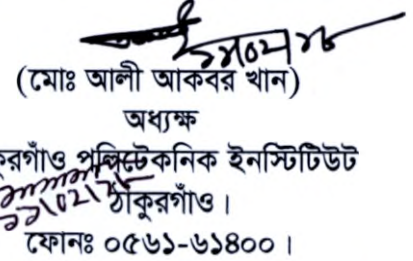 (মোঃ আলী আকবর খান)
অধ্যক্ষ
করগাঁও পলিটেকনিক ইনস্টিটিউট
ঠাকুরগাঁও।
ফোনঃ ০৫৬১-৬১৪০০।